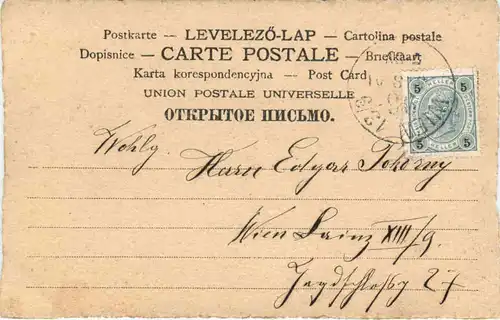 Postkarte — LEVELEZŐ-LAP — Cartolina postale
Dopisnice — CARTE POSTALE — Briefkaart
Karta korespondencyjna — Post Card
UNION POSTALE UNIVERSELLE
ОТКРЫТОЕ ПИСЬМО.
5 5
5 5
Wohlg.
Herrn Edgar
Wien Lainz XIII/9.
27